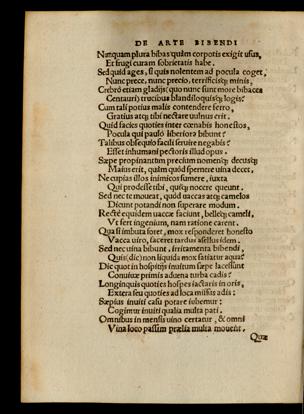 DE ARTE BIBENDI
Nunquam plura bibas quàm corporis exigit usus,
Et frugi curam sobrietatis habe.
Sed quid ages, si quis nolentem ad pocula coget,
Nunc prece, nunc precio, terrificisq; minis,
Crebrò etiam gladijs; quo nunc sunt more bibaces
Centauri; trucibus blandiloquisq; logis:
Cum tali potius malis contendere ferro,
Gratius atq; tibi nectare uulnus erit.
Quid facies quoties inter cœnabis honestos,
Pocula qui pauló liberiora bibunt?
Talibus obsequio facili seruire negabis?
Esset inhumani pectoris illud opus.
Sæpe propinantum precium nomenq; decusq;
Maius erit, quàm quòd spernere uina decet.
Ne cupias illos inimicos sumere, iuxta
Qui prodesse tibi, quiq; nocere queunt.
Sed nec te moueat, quòd uaccas atq; camelos
Dicunt potandi non superare modum.
Rectè equidem uaccæ faciunt, belleq; cameli,
Vt fert ingenium, nam ratione carent.
Qua si imbuta foret, mox responderet honesto
Vacca uiro, faceret tardus asellus idem.
Sed nec uina bibunt, irritamenta bibendi,
Quis (dic) non liquida mox satiatur aqua?
Dic quot in hospitijs inuitum sæpe lacessunt
Conuiuæ primis aduena turba cadis?
Longinquis quoties hospes iactaris in oris,
Extera seu quoties ad loca missus adis:
Sæpius inuiti casu potare iubemur:
Cogimur inuiti qualia multa pati.
Omnibus in mensis uino certatur, & omni
Vina loco passim prælia multa mouent.
Quæ